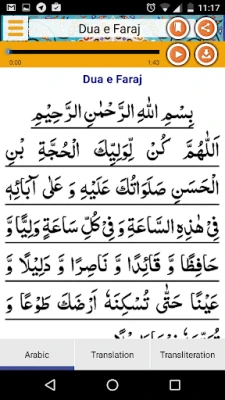 11:17
Dua e Faraj
0:00 1:43
Dua e Faraj
بِسْمِ اللهِ الرَّحْمٰنِ الرَّحِيْمِ
اَللّٰهُمَّ كُنْ لِّوَلِيِّكَ الْحُجَّةِ بْنِ
الْحَسَنِ صَلَوَاتُكَ عَلَيْهِ وَ عَلٰى اٰبَائِهٖ
فِيْ هٰذِهِ السَّاعَةِ وَ فِيْ كُلِّ سَاعَةٍ وَلِيًّا وَّ
حَافِظًا وَّ قَائِدًا وَّ نَاصِرًا وَّ دَلِيْلًا وَّ
عَيْنًا حَتّٰى تُسْكِنَهٗ اَرْضَكَ طَوْعًا وَّ
Arabic Translation Transliteration